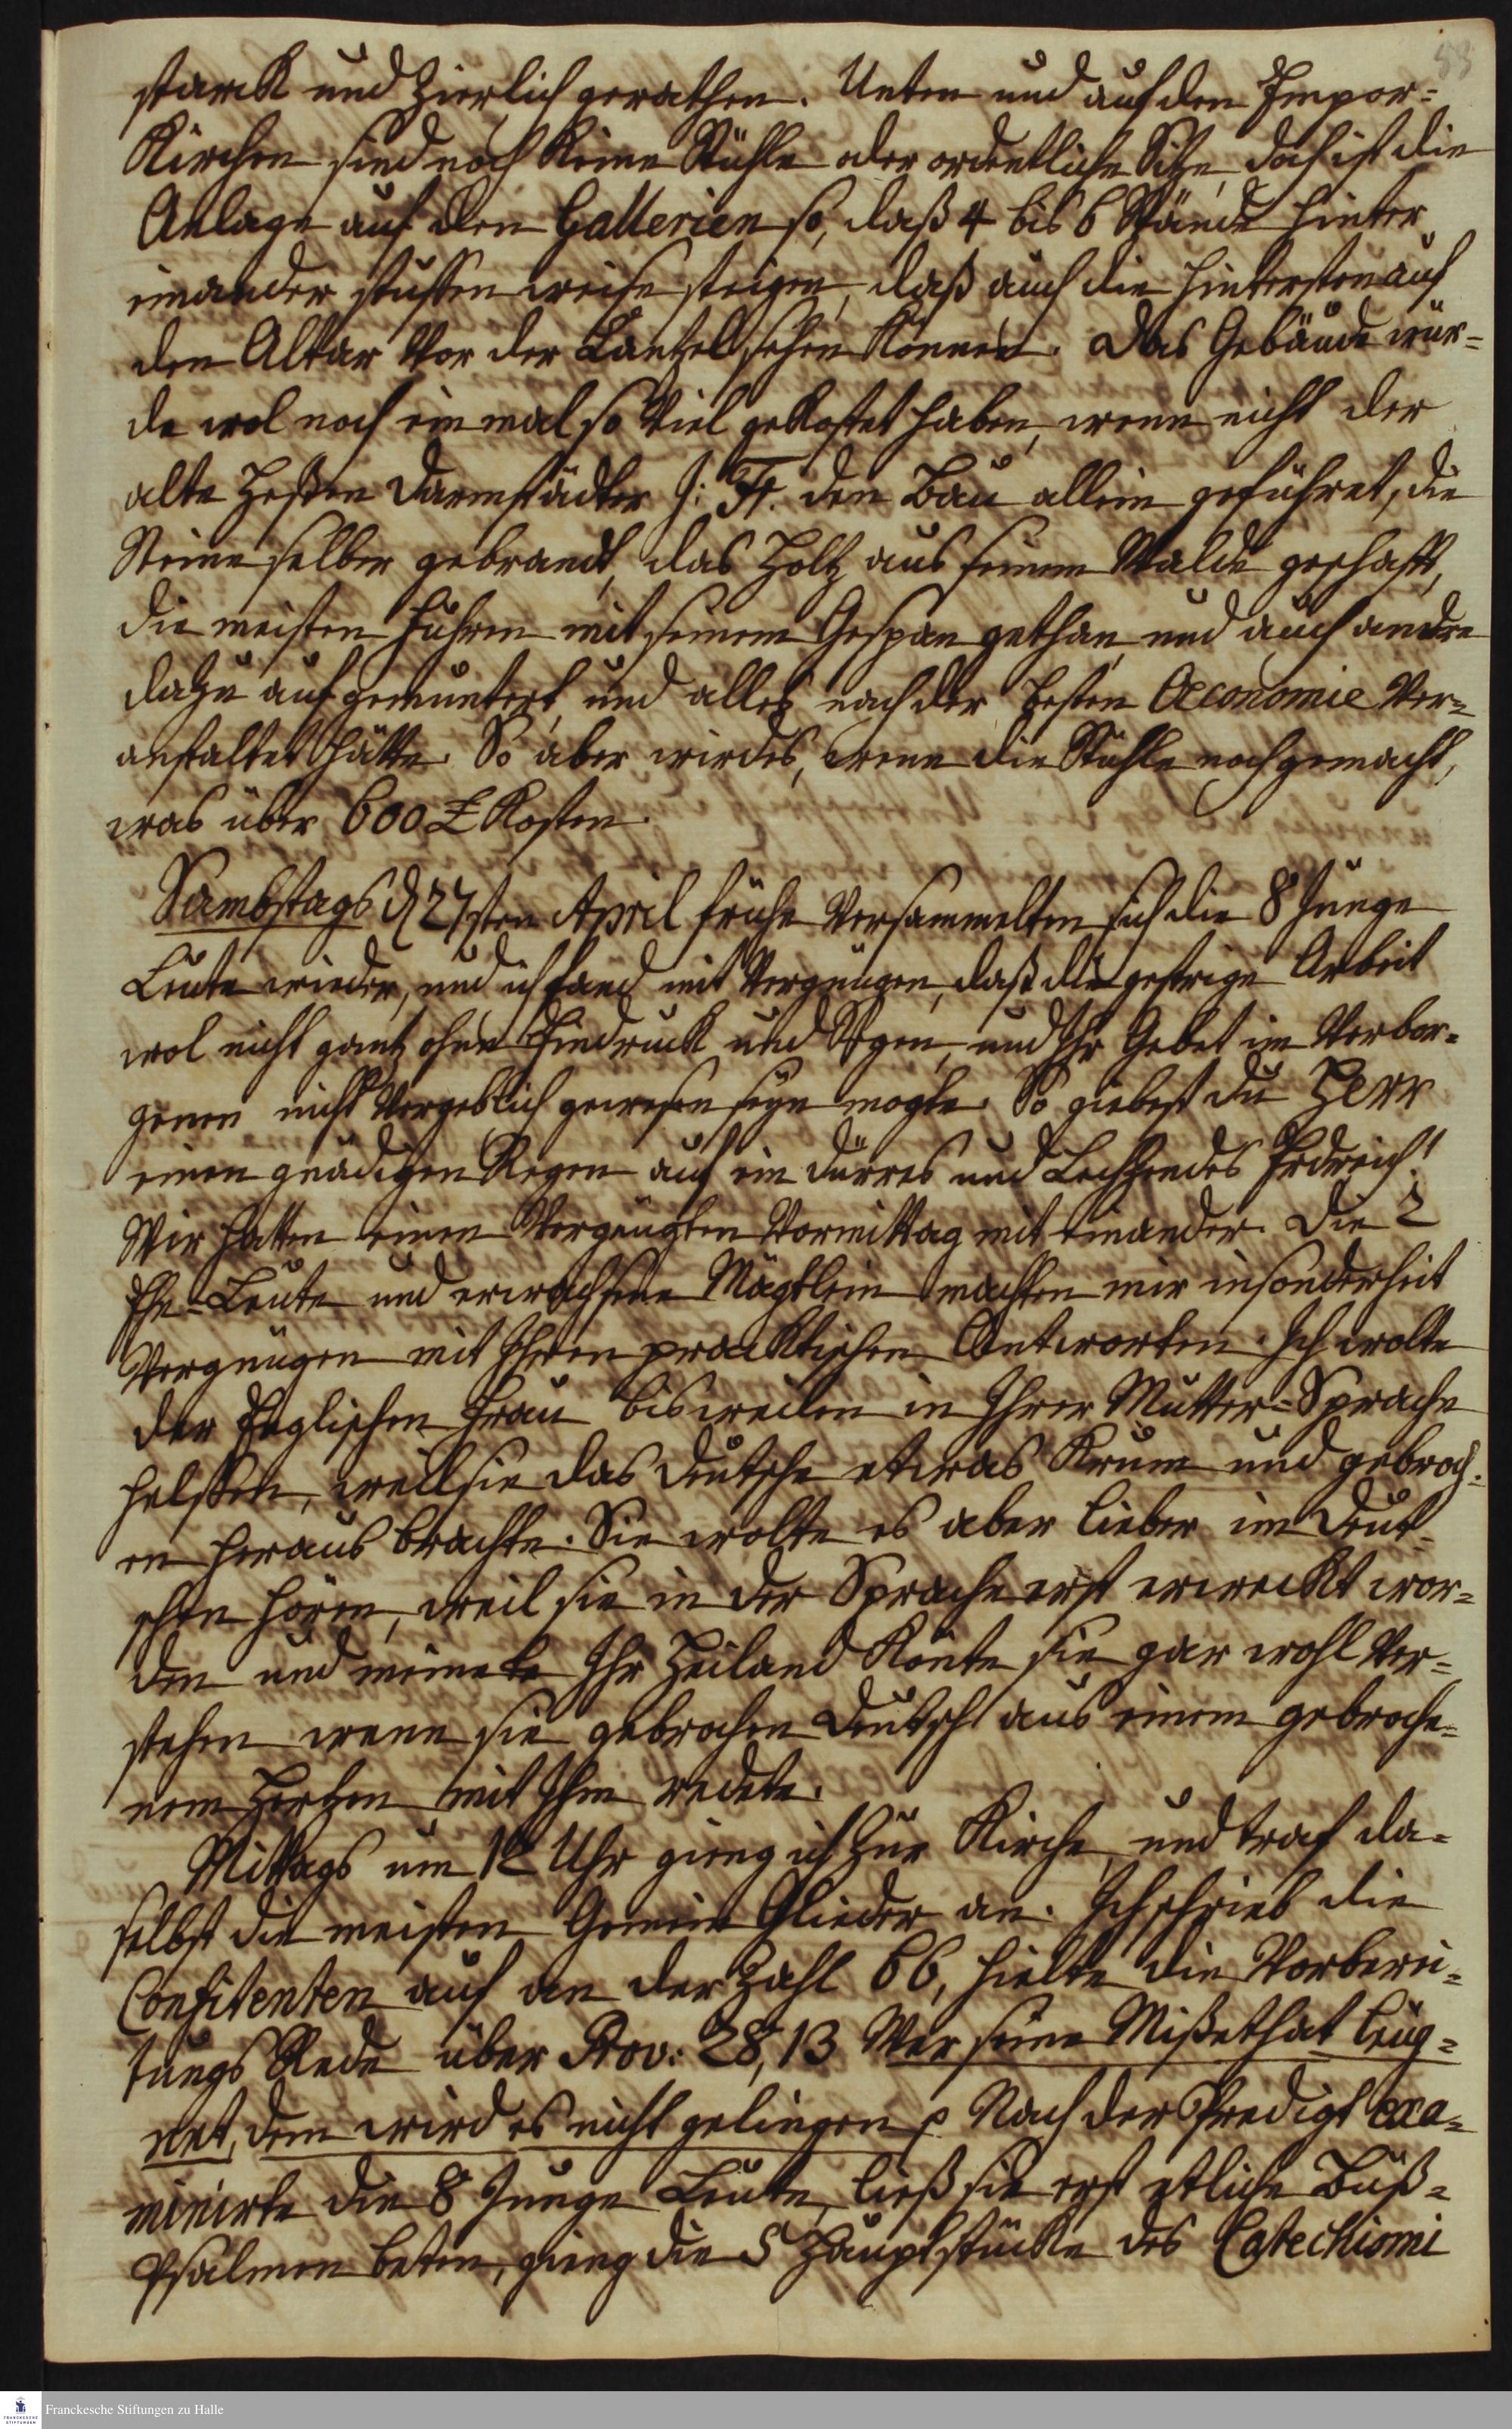 53
starck und zierlich gerathen. Unten und auf den Empor=
Kirchen sind noch keine Stühle oder ordentliche Sitze, doch ist die
Anlage auf den Gallerien so, daß 4 bis 6 Stände hinter
einander stuffenweise steigen, daß auch die hintersten auf
den Altar vor der Cantzel sehen können. Das Gebäude wür=
de wol noch einmal so viel gekostet haben, wenn nicht der
alte Heßen Darmstädter J: Fr. den Bau allein geführet, die
Steine selber gebrandt, das Holtz aus seinem Walde geschafft,
die meisten Fuhren mit seinem Gespan gethan und auch andre
dazu aufgemuntert, und alles nach der besten Oeconomie ver=
anstaltet hätte. So aber wird es, wenn die Stühle noch gemacht,
was über 600 £ kosten.
Sambstags d 27sten April frühe versammelten sich die 8 junge
Leute wieder, und ich fand mit Vergnügen, daß die gestrige Arbeit
wol nicht gantz ohne Eindruck und Segen, und Ihr Gebet im Verbor=
genen nicht vergeblich gewesen seyn mogte. So giebest du HErr
einen gnädigen Regen auf ein dürres und Lechzendes Erdreich!
Wir hatten einen vergnügten Vormittag mit einander. Die 2
Ehe-Leute und erwachsene Mägdlein machten mir insonderheit
Vergnügen mit Ihren practischen Antworten. Ich wolte
der Englischen Frau bisweilen in Ihrer Mutter=Sprache
helffen, weil sie das deutsche etwas krum und gebroch=
en heraus brachte. Sie wolte es aber lieber im Deut=
schen hören, weil sie in der Sprache erst erweckt wor=
den und meinete Ihr Heiland könte sie gar wohl ver=
stehen wenn sie gebrochen Deutsch aus einem gebroche=
nem Hertzen mit Ihm redete.
Mittags um 12 Uhr gieng ich zur Kirche, und traf da=
selbst die meisten Gemein Glieder an. Ich schrieb die
Confitenten auf an der Zahl 66, hielte die Vorberei=
tungs Rede über Prov: 28, 13 Wer seine Mißethat leug=
net, dem wird es nicht gelingen p Nach der Predigt exa=
minirte die 8 junge Leute, ließ sie erst etliche Buß=
Psalmen beten, gieng die 5 Hauptstücke des Catechismi
Franckesche Stiftungen zu Halle